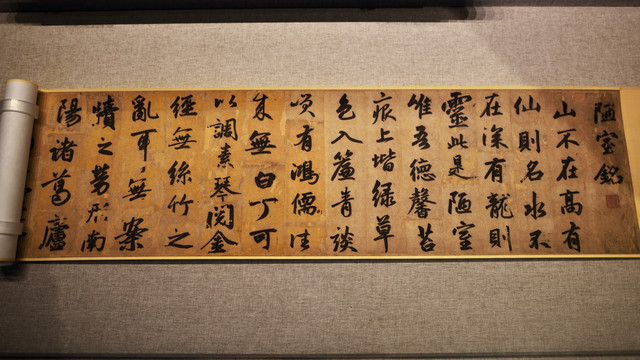 陋室銘
山不在高有
仙則名水不
在深有龍則
靈此是陋室
唯吾德馨苔
痕上堦綠草
色入簾青談
笑有鴻儒往
來無白丁可
以調素琴閱金
經無絲竹之
亂耳無案
牘之勞形南
陽諸葛廬